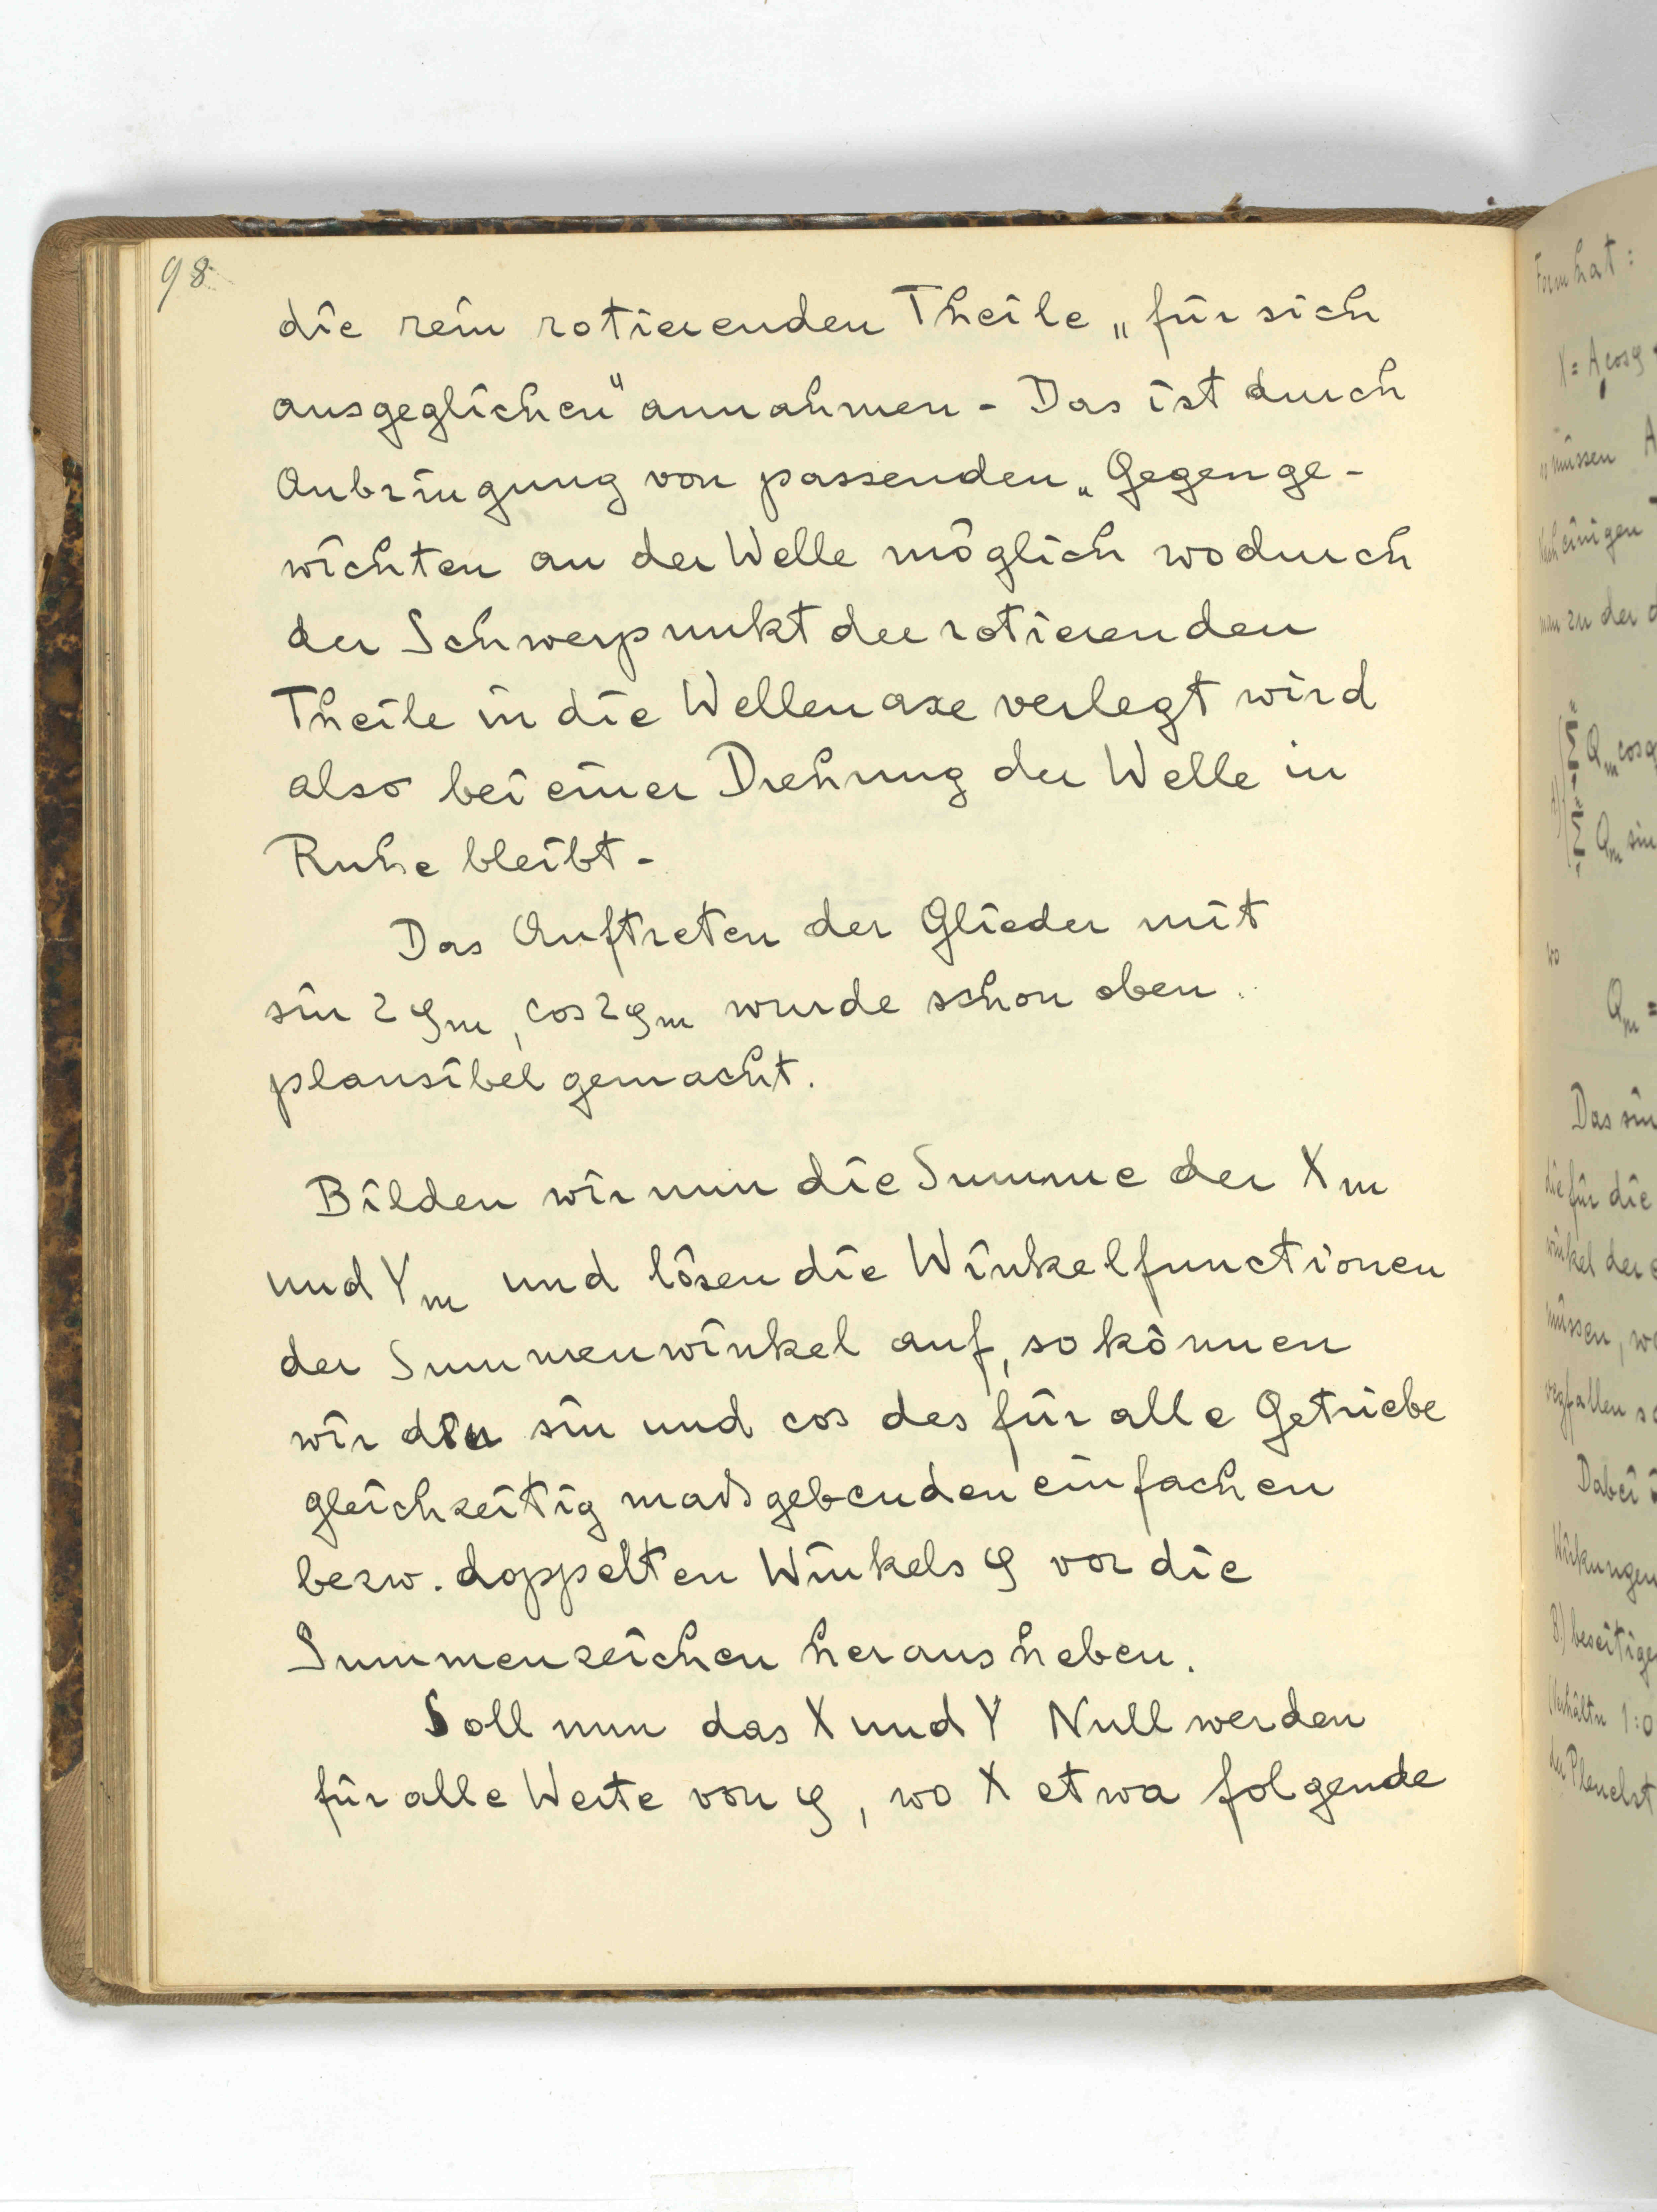 98
die rein rotierenden Theile „für sich
ausgeglichen“ annahmen - Das ist durch
Anbringung von passenden „Gegenge-
wichten an der Welle möglich wodurch
der Schwerpunkt der rotierenden
Theile in die Wellenaxe verlegt wird
also bei einer Drehung der Welle in
Ruhe bleibt -
Das Auftreten der Glieder mit
sin 2φm, cos 2φm wurde schon oben
plausibel gemacht.
Bilden wir nun die Summe der Xm
und Ym und lösen die Winkelfunctionen
der Summenwinkel auf, so können
wir den sin und cos des für alle Getriebe
gleichzeitig maßgebenden einfachen
bezw. doppelten Winkels φ vor die
Summenzeichen herausheben.
Soll nun das X und Y Null werden
für alle Werte von φ, wo X etwa folgende
Form hat:
X = A cos φ
müssen A
einigen
man zu der
Qm cos φ
Qm sin
wo
Qm =
Das sin
die für die
winkel der
müssen, wo
wegfallen
Dabei
Wirkungen
B) beseitige
1:0
der Pleuelst